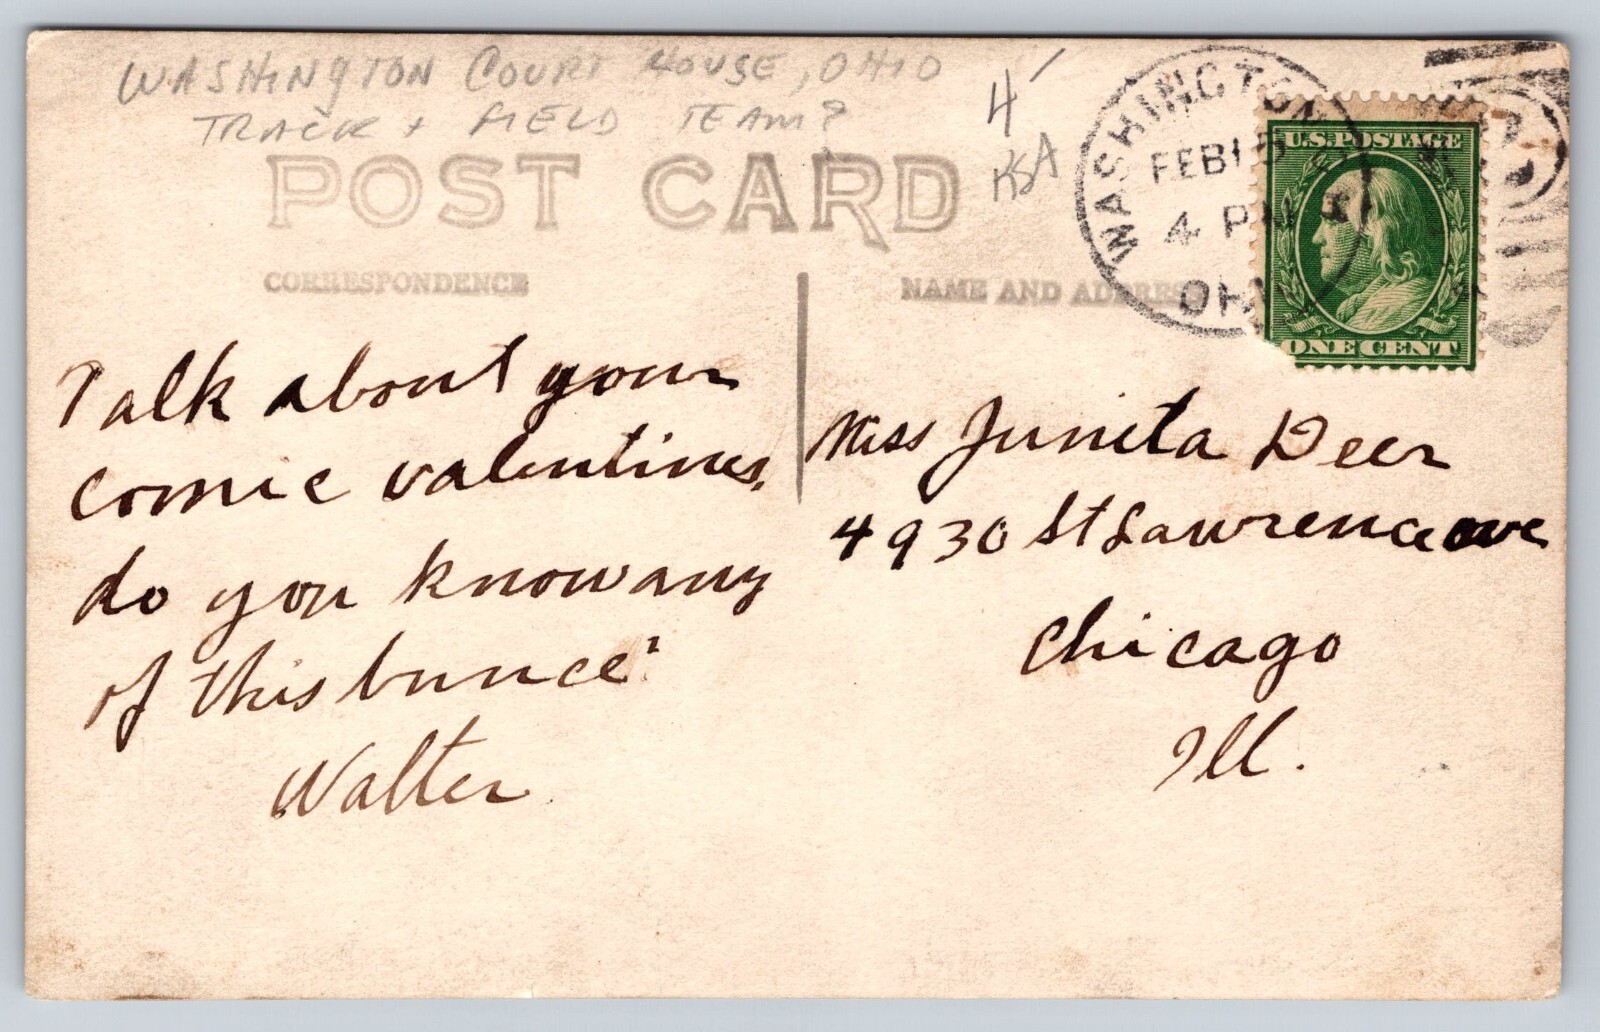 WASHINGTON COURT HOUSE, OHIO
TRACK + FIELD TEAM?
4
POST CARD
CORRESPONDENCE
NAME AND ADDRESS
WASHINGTON
FEB 15
4 PM
OHIO
U.S. POSTAGE
ONE CENT
Talk about your
comic valentines,
do you know any
of this bunce?
Walter
Miss Junita Deer
4930 St Lawrence ave
Chicago
Ill.